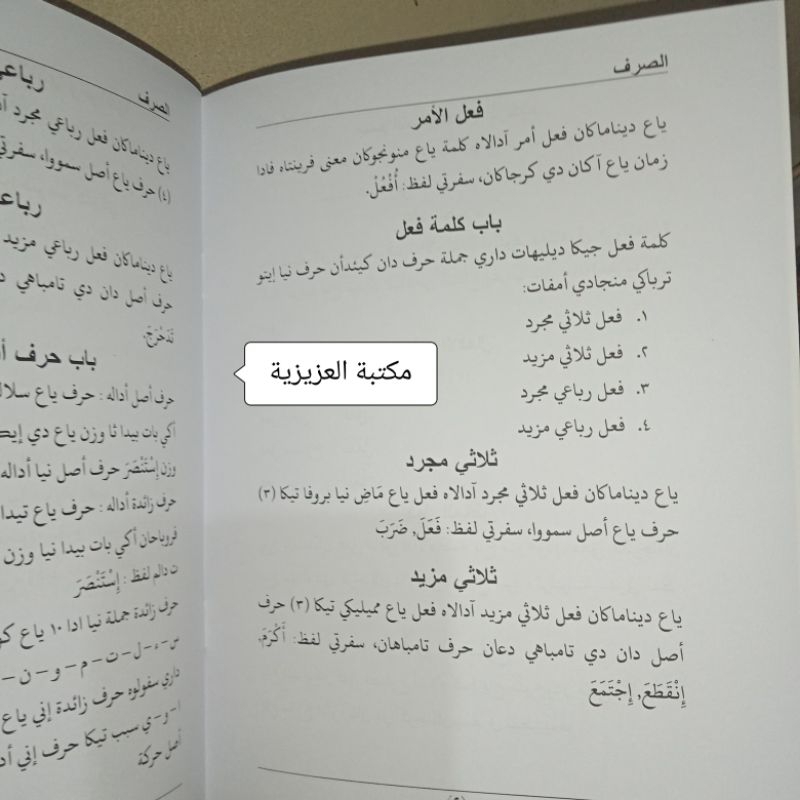 الصرف
فعل الأمر
ياع ديناماكان فعل أمر آدالاه كلمة ياع منونجوكان معنى فرينتاه فادا
زمان ياع آكان دي كرجاكان، سفرتي لفظ: أُفْعُلْ.
باب كلمة فعل
كلمة فعل جيكا ديليهات داري جملة حرف دان كيئدأن حرف نيا إيتو
ترباكي منجادي أمفات:
١. فعل ثلاثي مجرد
٢. فعل ثلاثي مزيد
٣. فعل رباعي مجرد
٤. فعل رباعي مزيد
ثلاثي مجرد
ياع ديناماكان فعل ثلاثي مجرد آدالاه فعل ياع مَاضِ نيا بروفا تيكا (٣)
حرف ياع أصل سمووا، سفرتي لفظ: فَعَلَ, ضَرَبَ
ثلاثي مزيد
ياع ديناماكان فعل ثلاثي مزيد آدالاه فعل ياع مميليكي تيكا (٣) حرف
أصل دان دي تامباهي دعان حرف تامباهان، سفرتي لفظ: أَكْرَمَ,
إِنْقَطَعَ, إِجْتَمَعَ
مكتبة العزيزية
الصرف
رباعي
ياع ديناماكان فعل رباعي مجرد
(٤) حرف ياع أصل سمووا، سفرتي
ياع ديناماكان فعل رباعي مزيد
حرف أصل دان دي تامباهي
تَدَحْرَجَ.
باب حرف
حرف أصل أداله : حرف ياع
أكي بات بيدا نا وزن ياع دي
وزن إِسْتَنْصَرَ حرف أصل نيا أداله
حرف زائدة أداله : حرف ياع تيدا
فروباحان أكي بات بيدا نيا وزن
ت دالم لفظ : إِسْتَنْصَرَ
حرف زائدة جملة نيا ادا ١٠ ياع
س – ء – ل – ت – م – و – ن –
داري سفولوه حرف زائدة إني ياع
ا – و – ي سبب تيكا حرف إني
أصل حركة